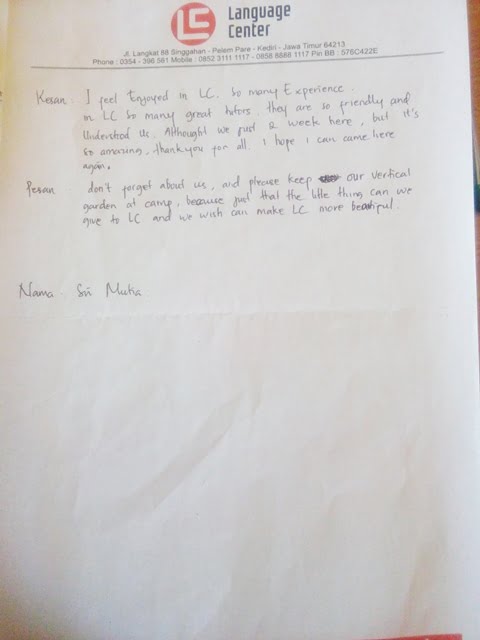 LC
Language
Center
Jl. Langkat 88 Singgahan - Pelem Pare - Kediri - Jawa Timur 64213
Phone : 0354 - 396 581 Mobile : 0852 3111 1117 - 0858 8888 1117 Pin BB : 576C422E
Kesan : I feel Enjoyed in LC. So many Experience.
in LC so many great tutors. they are so friendly and
Understood us. Althought we just 2 week here, but it's
so amazing, thank you for all. I hope I can came here
again.
Pesan : don't forget about us, and please keep our vertical
garden at camp, because just that the little thing can we
give to LC and we wish can make LC more beautiful.
Nama : Sri Mutia